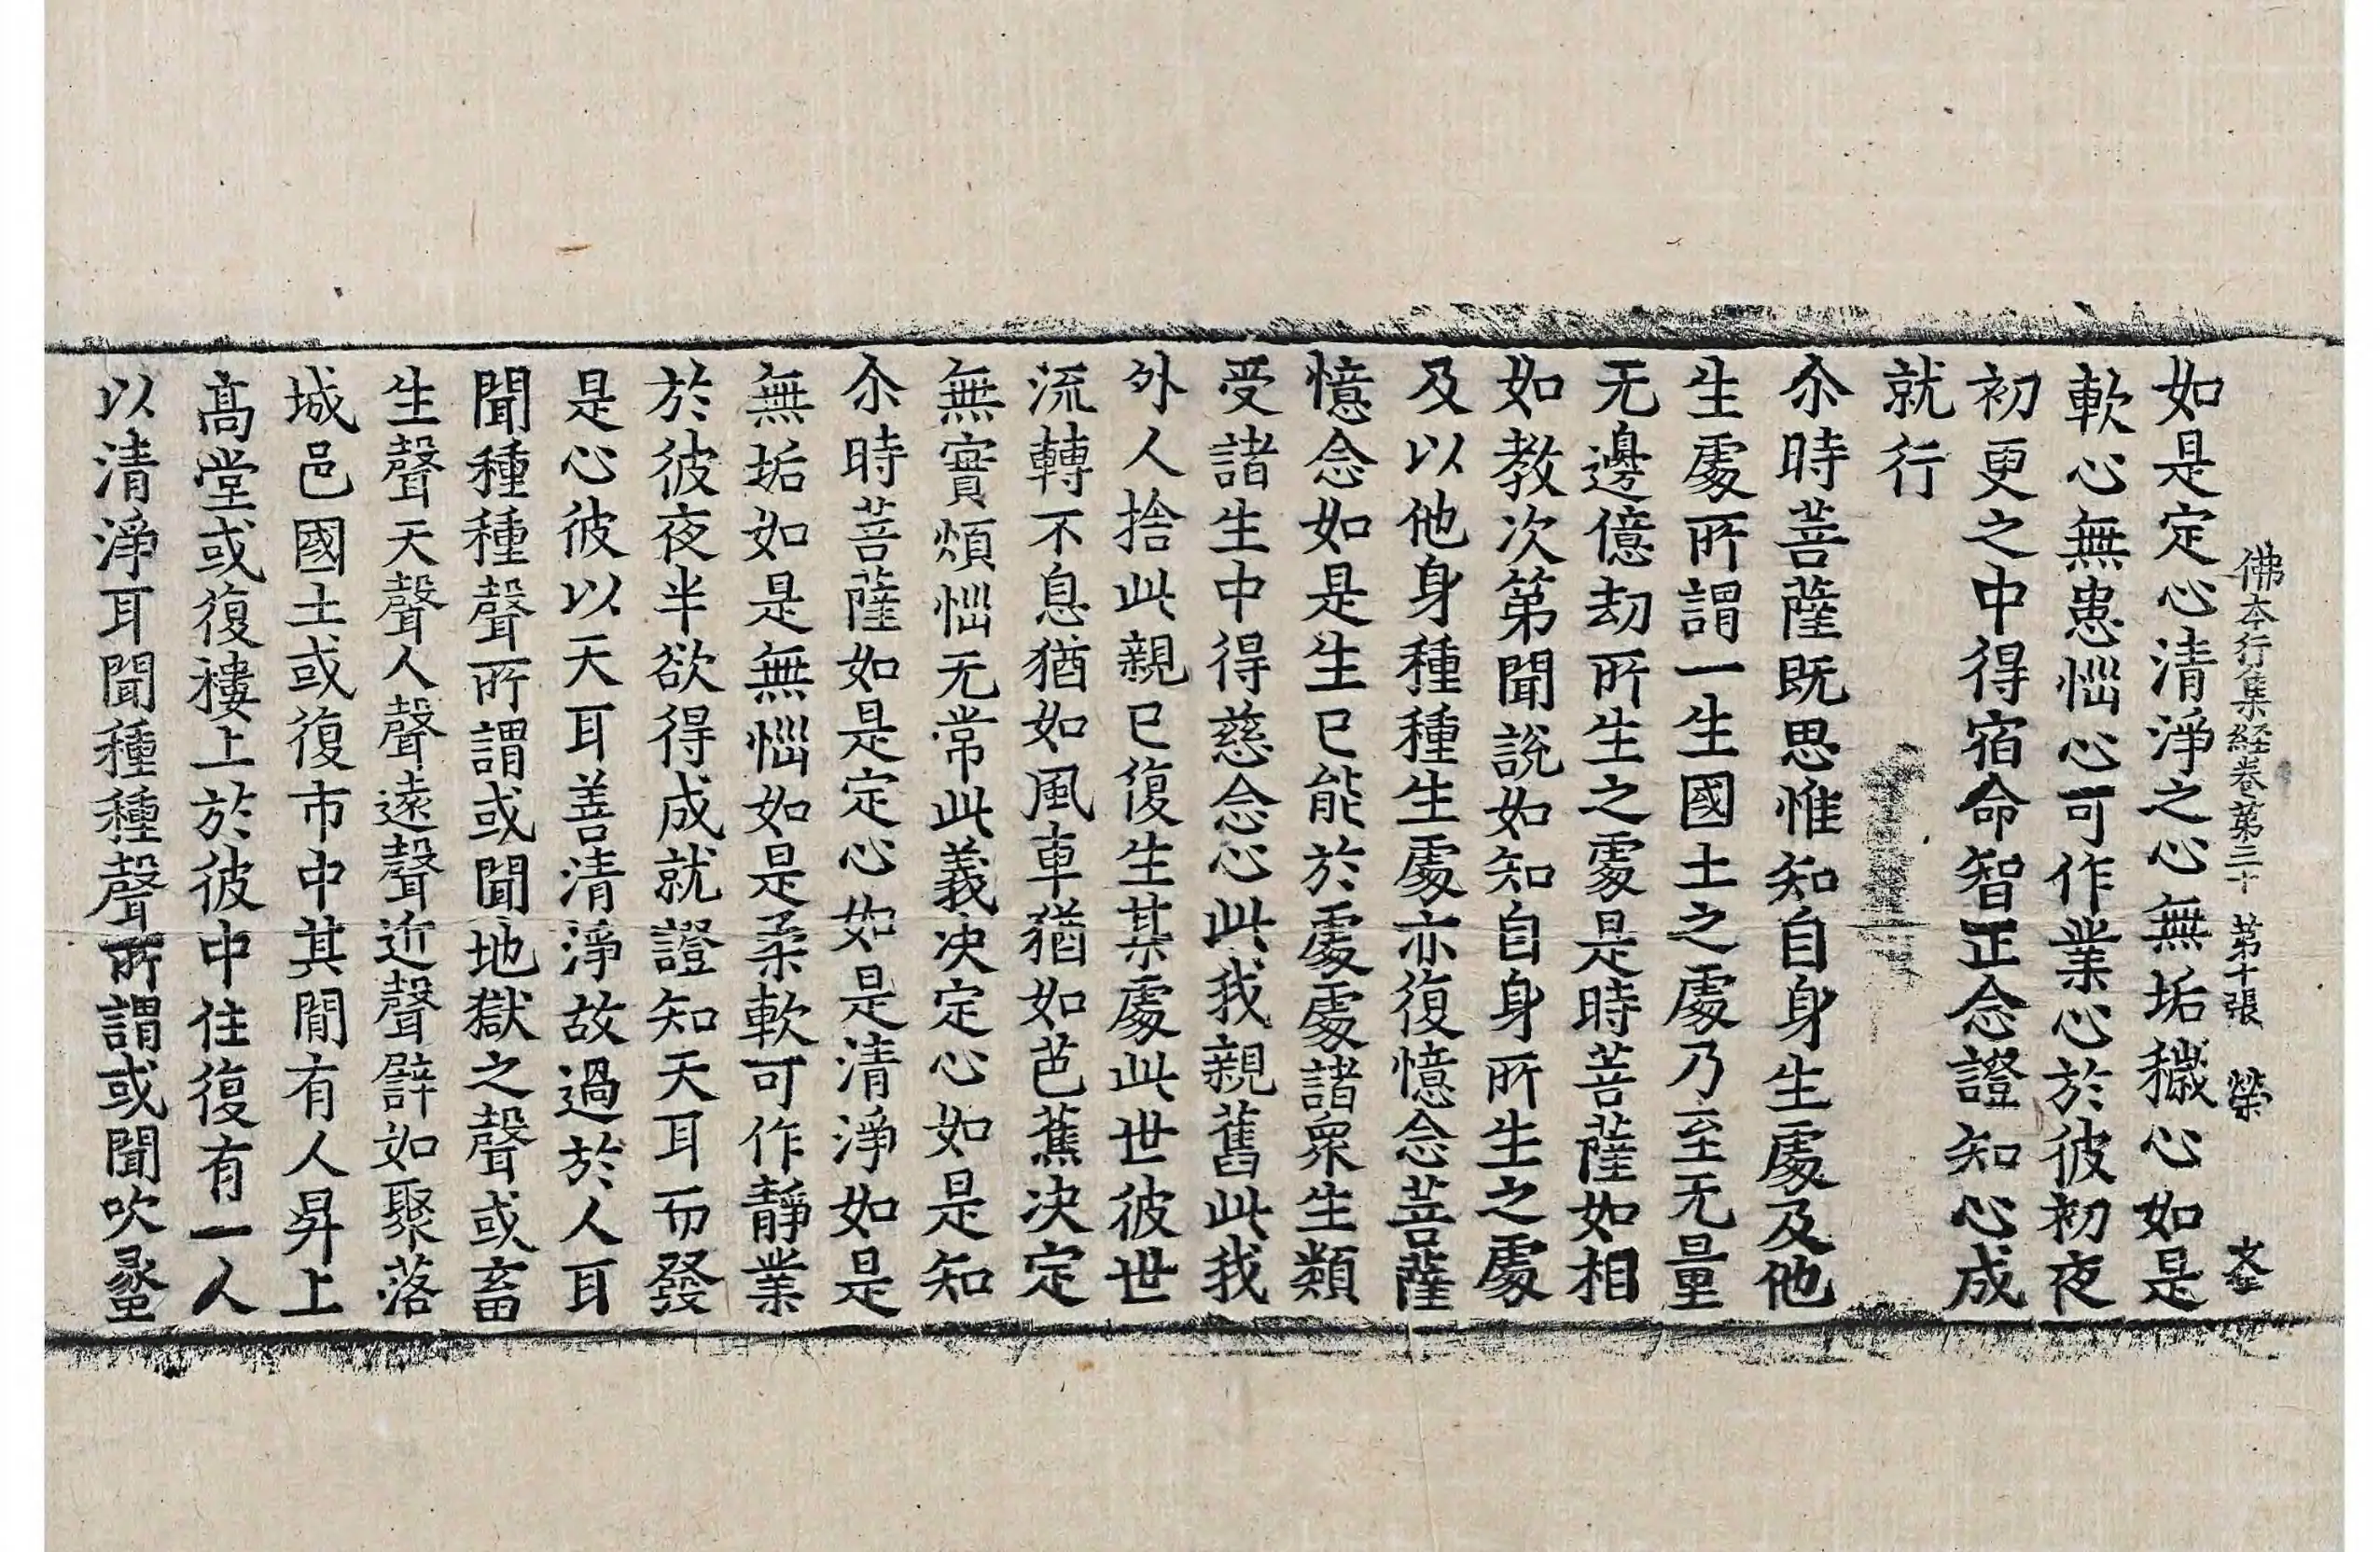 佛本行集経卷第三十 第十張 榮
如是定心清淨之心無垢穢心如是
軟心無患惱心可作業心於彼初夜
初更之中得宿命智正念證知心成
就行
尒時菩薩既思惟知自身生處及他
生處所謂一生國土之處乃至无量
无邊億劫所生之處是時菩薩如相
如教次第聞說如知自身所生之處
及以他身種種生處亦復憶念菩薩
憶念如是生已能於處處諸衆生類
受諸生中得慈念心此我親舊此我
外人捨此親已復生某處此世彼世
流轉不息猶如風車猶如芭蕉決定
無實煩惱无常此義決定心如是知
尒時菩薩如是定心如是清淨如是
無垢如是無惱如是柔軟可作靜業
於彼夜半欲得成就證知天耳而發
是心彼以天耳善清淨故過於人耳
聞種種聲所謂或聞地獄之聲或畜
生聲天聲人聲遠聲近聲譬如聚落
城邑國土或復市中其閒有人昇上
髙堂或復樓上於彼中住復有一人
以清淨耳聞種種聲所謂或聞吹蠡